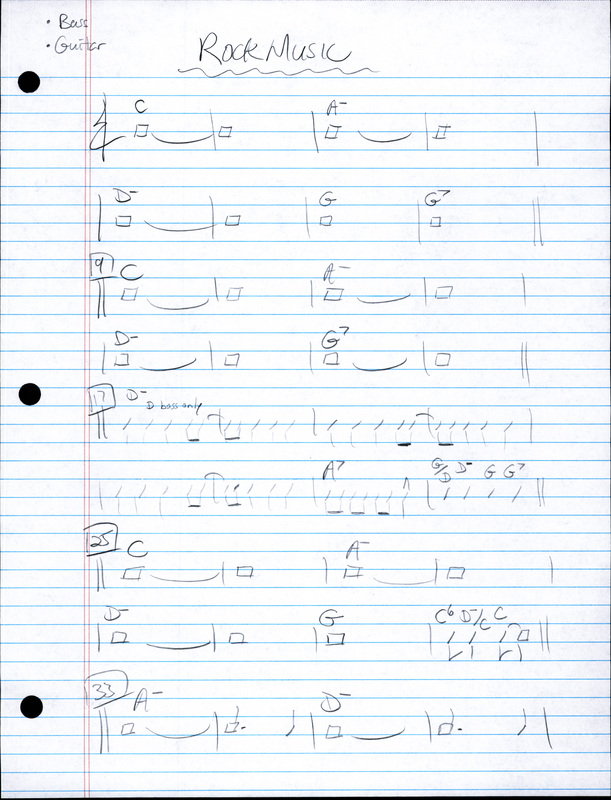 • Bass
• Guitar
Rock Music
C A-
D- G G7
9 C A-
D- G7
17 D- D bass only
A7 G/D D- G G7
25 C A-
D- G C6 D-/C C
33 A- D-